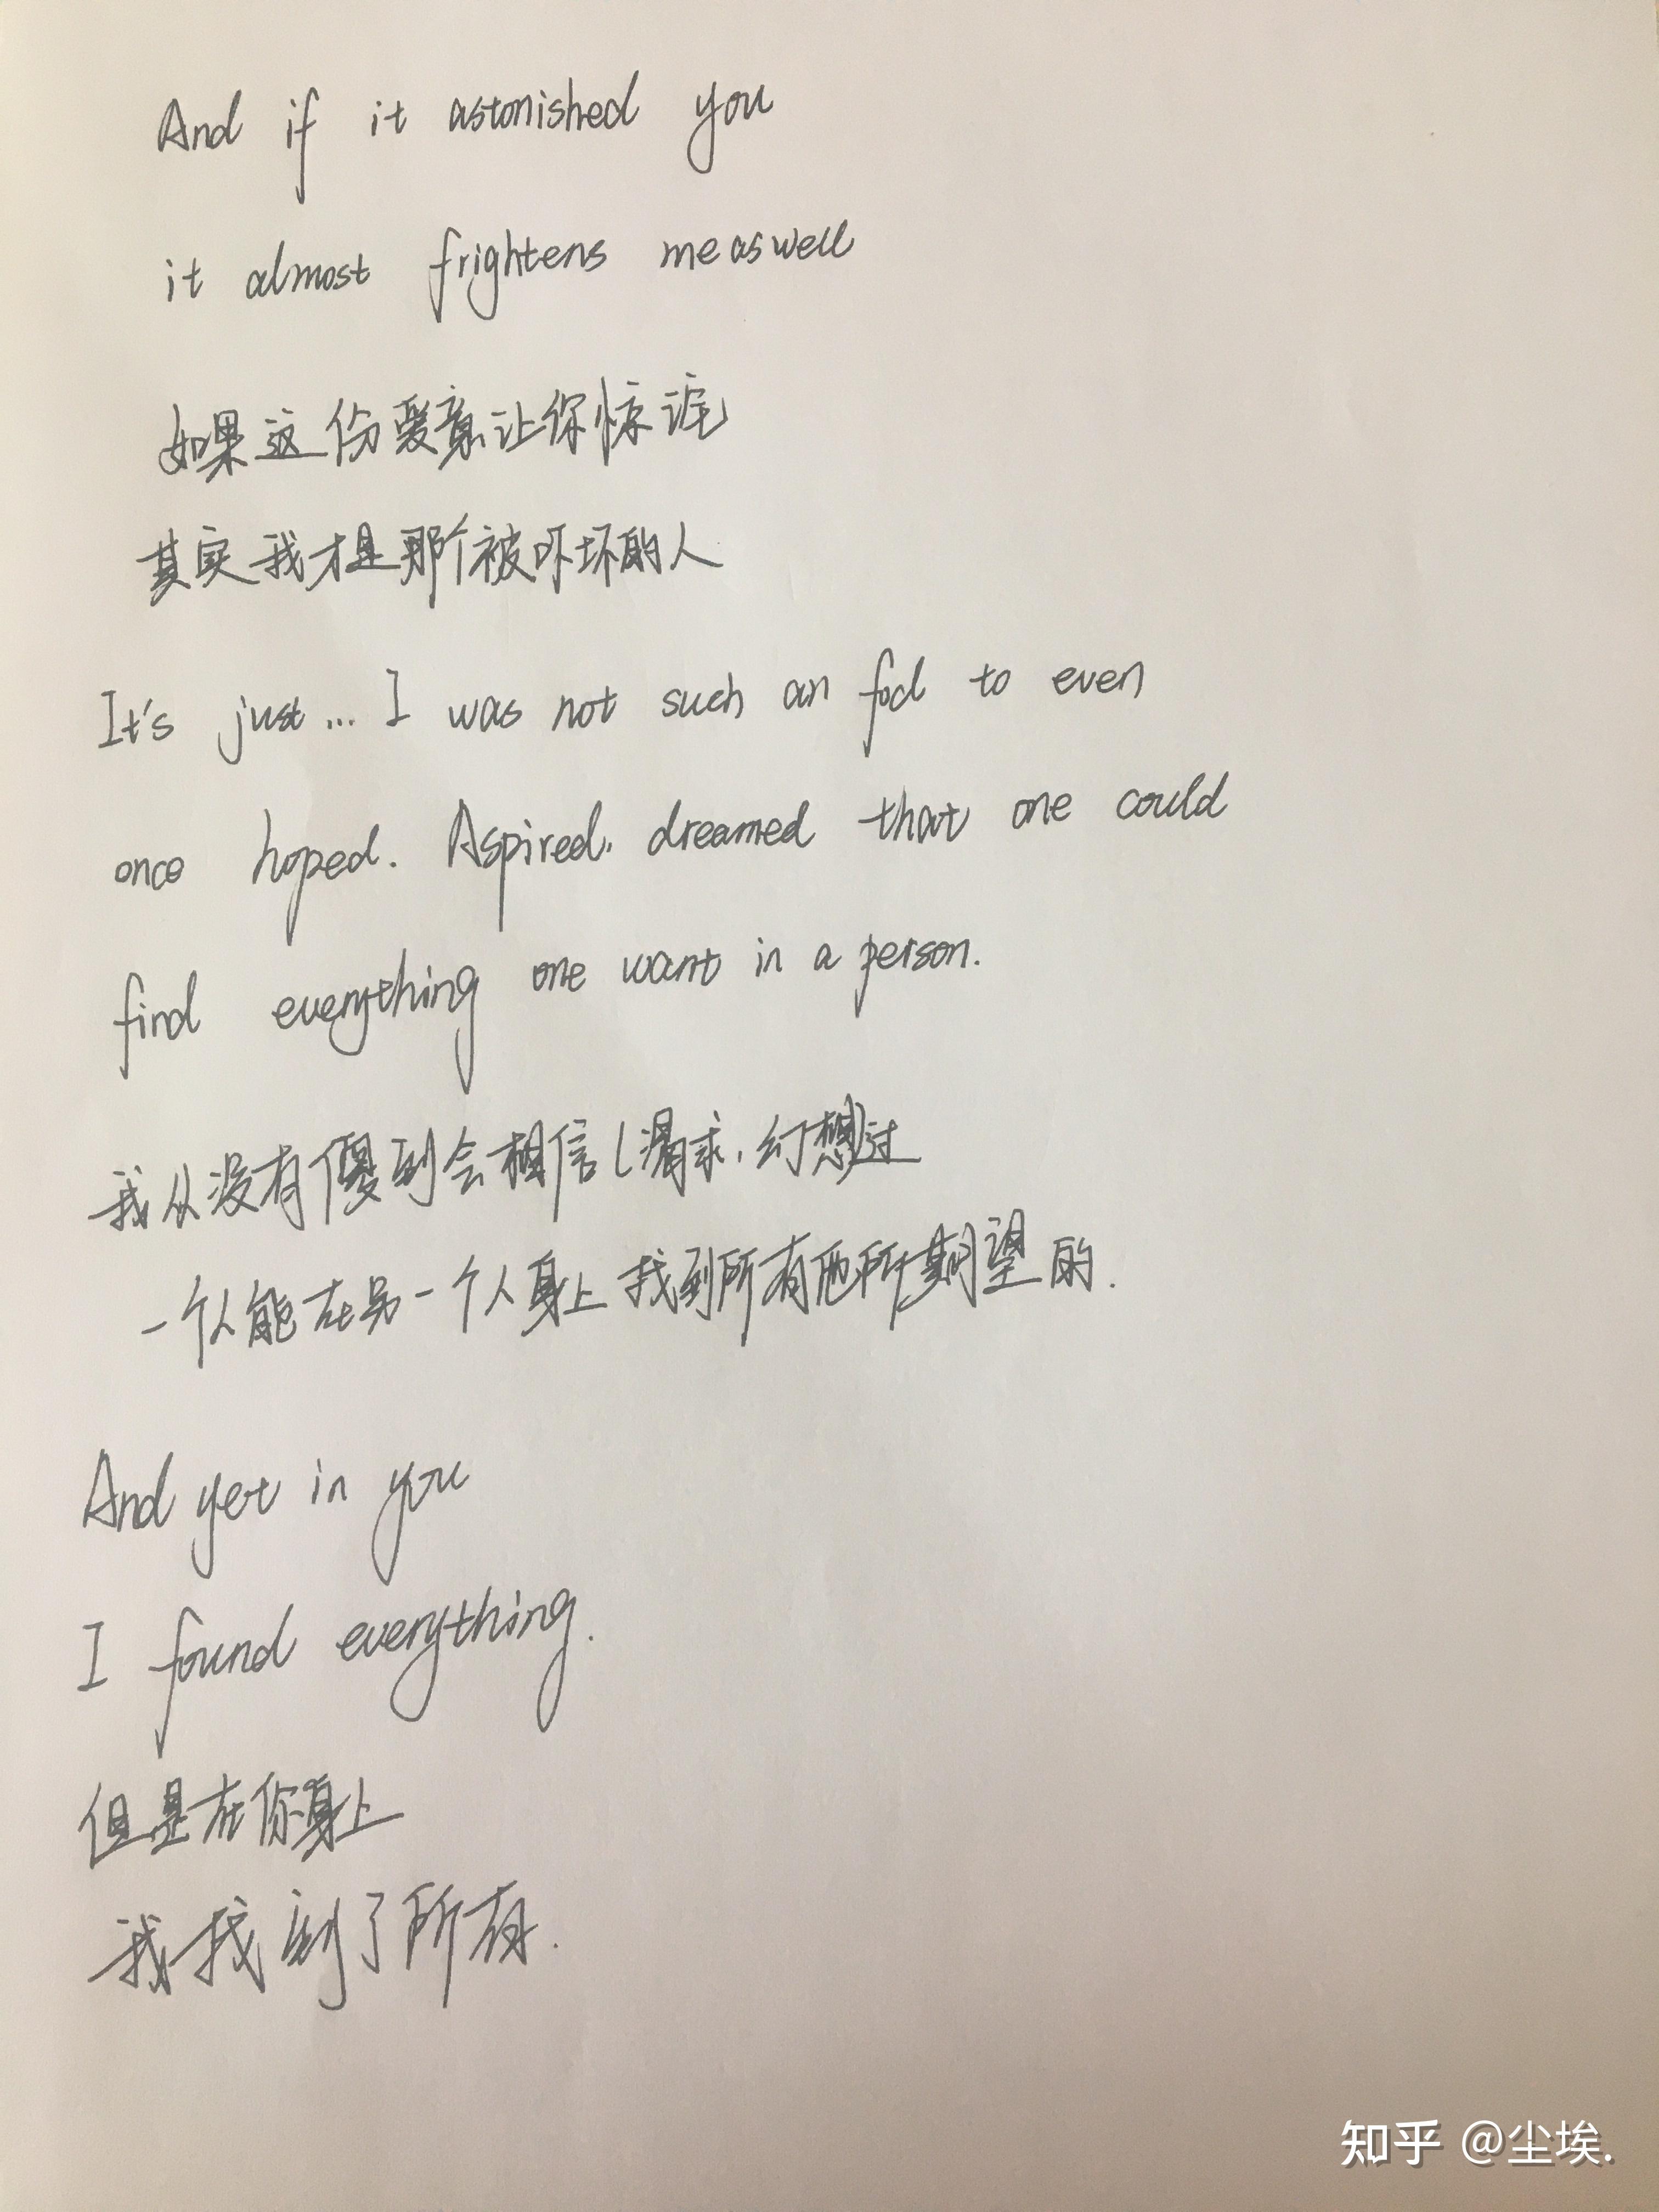 And if it astonished you
it almost frightens me as well
如果这份爱意让你惊诧
其实我才是那个被吓坏的人
It's just... I was not such an fool to even
once hoped. Aspired, dreamed that one could
find everything one want in a person.
我从没有傻到会相信（渴求，幻想）过
一个人能在另一个人身上找到所有他所期望的.
And yet in you
I found everything.
但是在你身上
我找到了所有.
知乎 @尘埃.